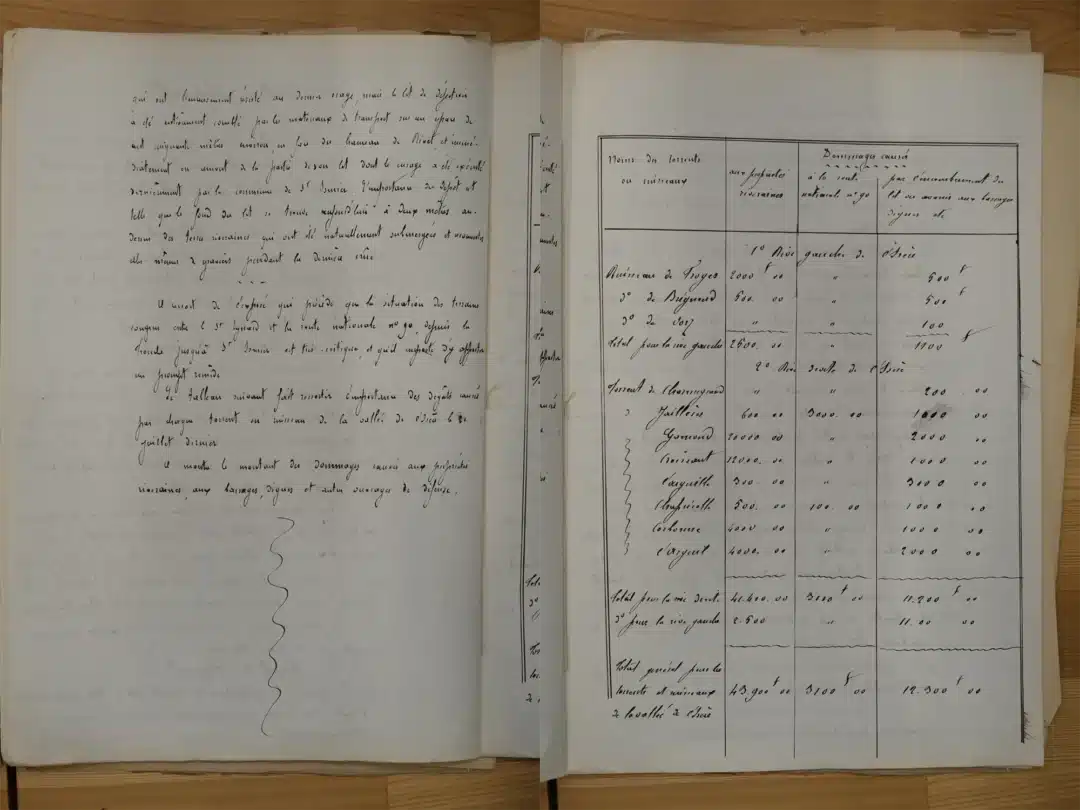 qui ont heureusement résisté au dernier orage, mais le lit de déjection
a été entièrement comblé par les matériaux de transport sur un espace de
cent cinquante mètres environ, au lieu du hameau de et immé-
diatement en amont de la partie de son lit dont le curage a été exécuté
dernièrement par la commune de St L'importance du dépôt est
telle que le fond du lit se trouve aujourd'hui à deux mètres au-
dessus des terres riveraines qui ont été naturellement submergées et recouvertes
elles mêmes de graviers pendant la dernière crue
Il ressort de l'exposé qui précède que la situation des terrains
compris entre l' et la route nationale no 90, depuis la
jusqu'à St est très critique, et qu'il importe d'y apporter
un prompt remède
Le tableau suivant fait ressortir l'importance des dégâts causés
par chaque torrent ou ruisseau de la vallée de l'Isère le
juillet dernier
Il montre le montant des dommages causés aux propriétés
riveraines, aux barrages, digues et autres ouvrages de défense.
Noms des torrents
ou ruisseaux
Dommages causés
aux propriétés
riveraines
à la route
nationale no 90
par l'encombrement du
lit ou avaries aux barrages
digues etc
1o Rive gauche de l'Isère
Ruisseau de Froges 2000 f 00 " 500 f
do de Brignoud 500. 00 " 500 f
do de " " 100
Total pour la rive gauche 2500. 00 " 1100 f
2o Rive droite de l'Isère
Torrent de " " 200 00
" 600 00 3000. 00 1000 00
20000 00 " 2000 00
12000. 00 " 1000 00
300. 00 " 3000 00
500. 00 100. 00 1000 00
4000 00 " 1000 00
4000. 00 " 2000 00
Total pour la rive droite 41.400. 00 3100 f 00 11.200 f 00
do pour la rive gauche 2.500 " 11.00 00
Total général pour les
torrents et ruisseaux 43.900 f 00 3100 f 00 12.300 f 00
de la vallée de l'Isère